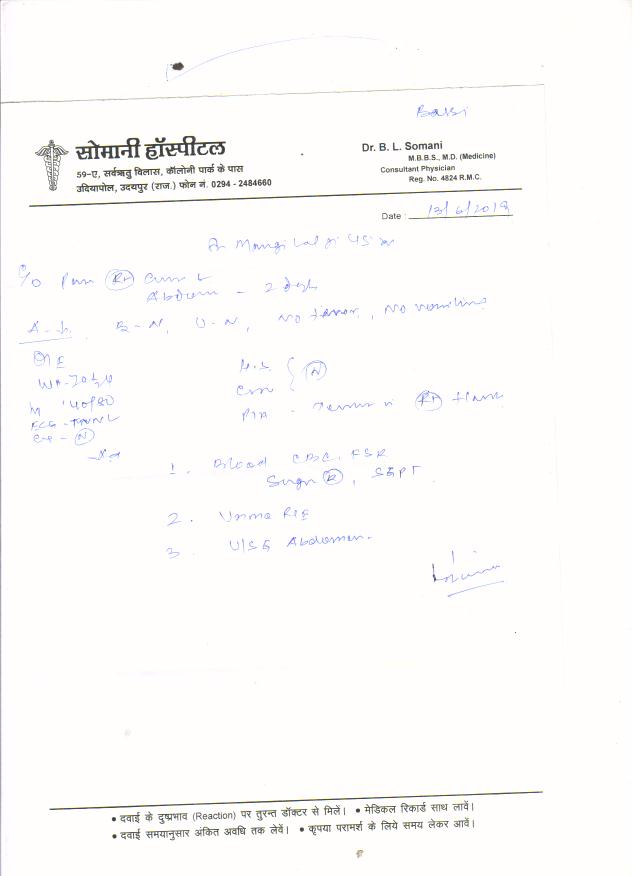 Bassi
सोमानी हॉस्पीटल
59-ए, सर्वऋतु विलास, कॉलोनी पार्क के पास
उदियापोल, उदयपुर (राज.) फोन नं. 0294 - 2484660
Dr. B. L. Somani
M.B.B.S., M.D. (Medicine)
Consultant Physician
Reg. No. 4824 R.M.C.
Date : 13/6/2019
Mangi Lal Ji 45
C/O Pain Rt
Abdomen - 2 days
B-N, U-N, No fever, No vomiting
O/E
Wt-70
140/80
ECG -
N
P/A - Rt flank
1. Blood CBC, ESR
Sugar R, SGPT
2. Urine R/E
3. U/S G Abdomen.
• दवाई के दुष्प्रभाव (Reaction) पर तुरन्त डॉक्टर से मिलें। • मेडिकल रिकार्ड साथ लावें।
• दवाई समयानुसार अंकित अवधि तक लेवें। • कृपया परामर्श के लिये समय लेकर आवें।